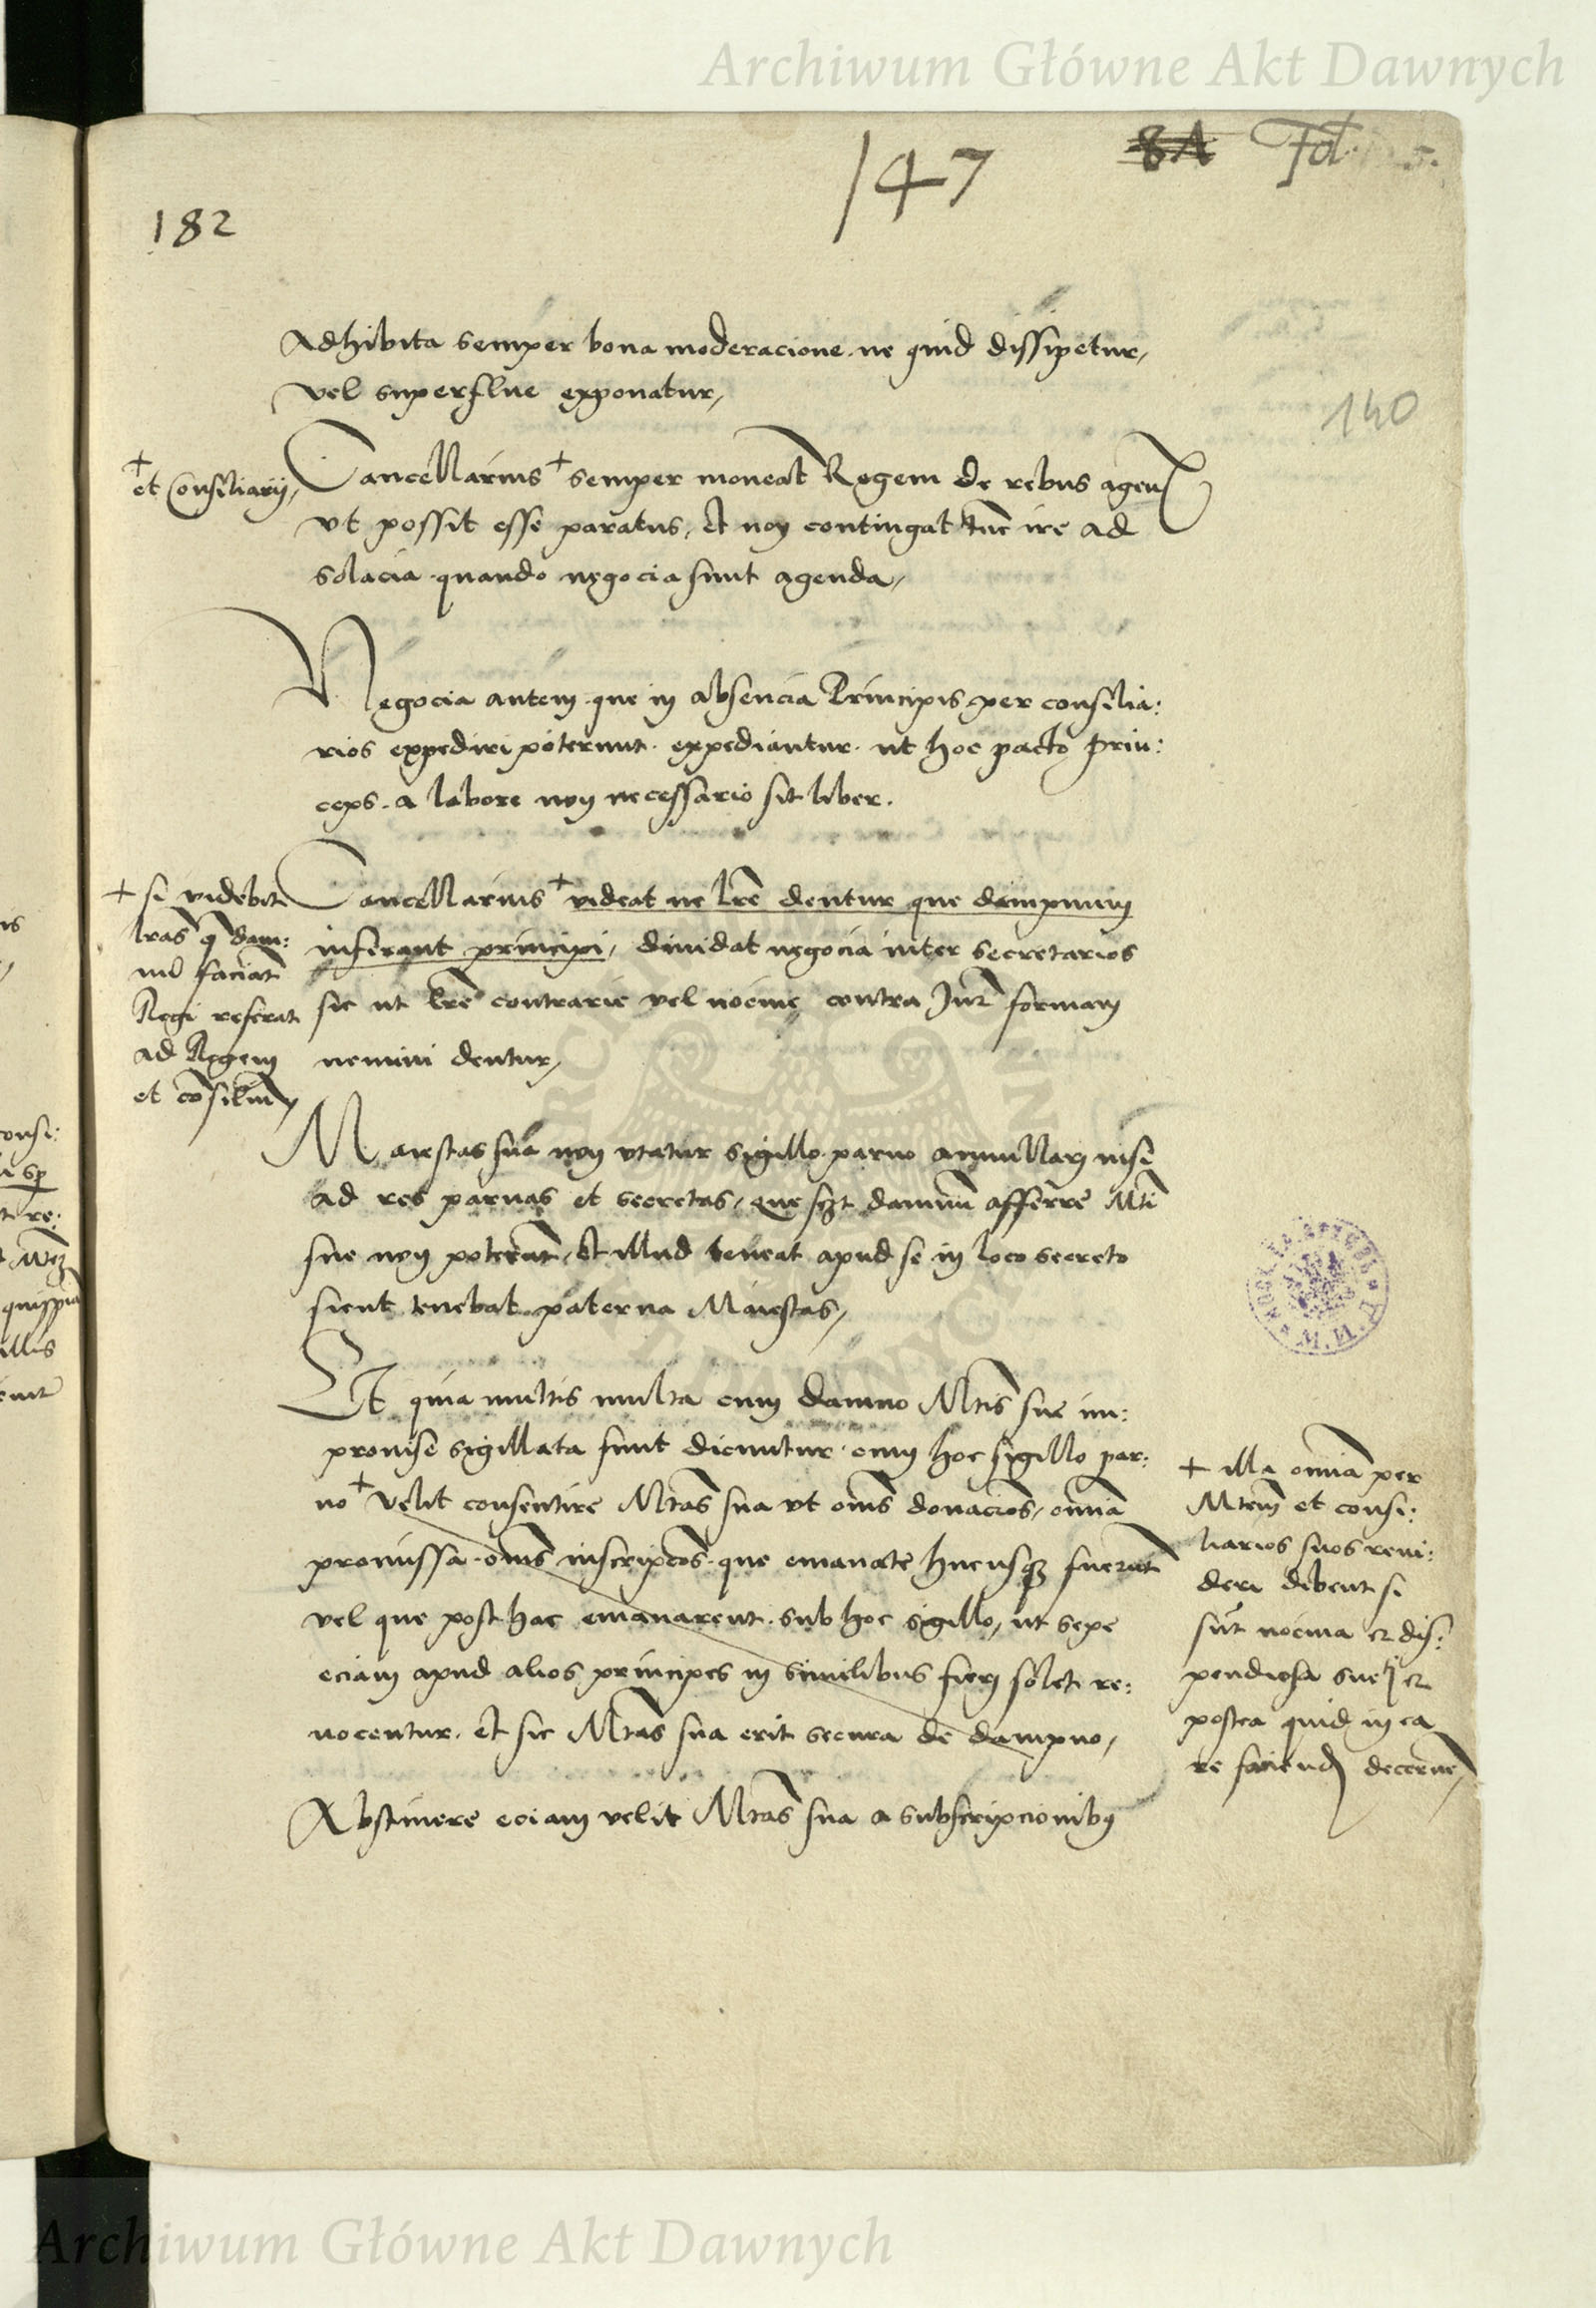 Archiwum Główne Akt Dawnych
147
8A Fol.
182
140
Adhibita semper bona moderacione. ne quid dissipetur,
vel superflue exponatur,
Cancellarius + semper moneat Regem de rebus agen
ut possit esse paratus, Et non contingat tunc ire ad
solacia quando negocia sunt agenda,
+
et Consiliarij,
Negocia autem que in absencia Principis per consilia:
rios expediri poterunt. expediantur. ut hoc pacto prin:
ceps. a labore non necessario sit liber.
Cancellarius + videat ne lre dentur que dampnum
inferant principi, dividat negocia inter secretarios
sic ut lre contrarie vel nocive contra Jur formam
nemini dentur,
+ si videbit
lras q dam:
nu faciat
Regi referat
ad Regem
et cosilium
Maiestas sua non utatur sigillo parvo annullari nisi
ad res parvas et secretas, que damnu afferre Mti
sue non poterunt, Et illud teneat apud se in loco secreto
sicut tenebat paterna Maiestas,
Et quia multis multa cum damno Mtis sue im:
provise sigillata sunt dicuntur. cum hoc sigillo par:
vo + velit consentire Mtas sua ut oms donacios, omnia
promissa. oms inscripcos. que emanate hucusq fuerunt
vel que post hac emanarent. sub hoc sigillo, ut sepe
eciam apud alios principes in similibus fieri solet. re:
vocentur. Et sic Mtas sua erit secura de dampno,
+ illa omnia per
Mtem et consi:
liarios suos revi:
deri debent si
sut nociva et dis:
pendiosa et
postea quid in ea
re faciend decerne
Abstinere eciam velit Mtas sua a subscripcionibus
Archiwum Główne Akt Dawnych